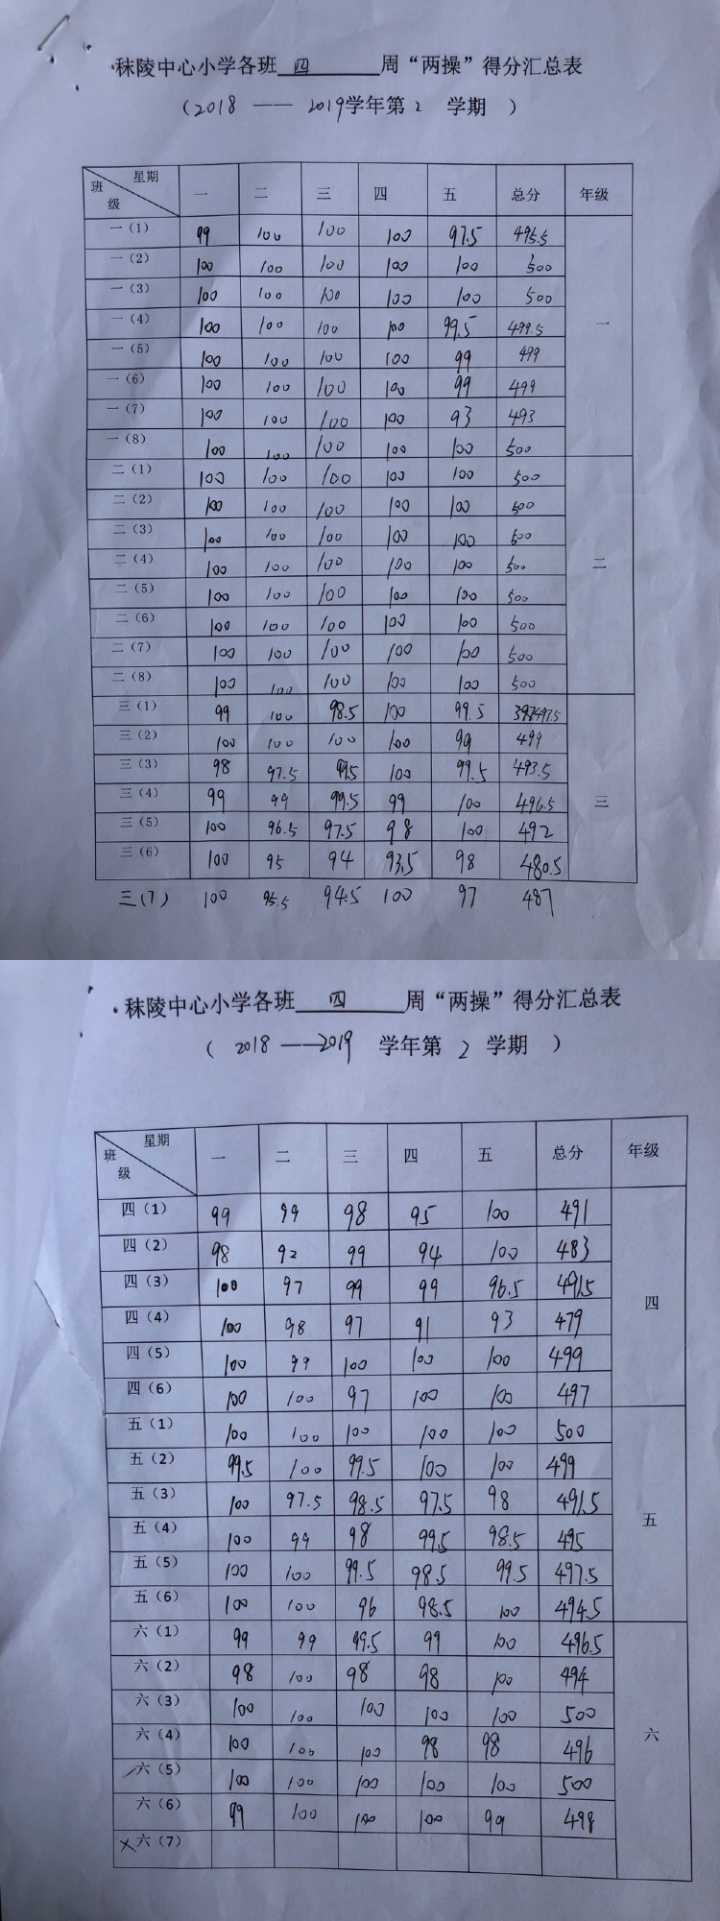 秣陵中心小学各班 四 周“两操”得分汇总表
（2018 —— 2019学年第 2 学期 ）
星期 班级 一 二 三 四 五 总分 年级
一（1） 99 100 100 100 97.5 495.5
一（2） 100 100 100 100 100 500
一（3） 100 100 100 100 100 500
一（4） 100 100 100 100 99.5 499.5 一
一（5） 100 100 100 100 99 499
一（6） 100 100 100 100 99 499
一（7） 100 100 100 100 93 493
一（8） 100 100 100 100 100 500
二（1） 100 100 100 100 100 500
二（2） 100 100 100 100 100 500
二（3） 100 100 100 100 100 500
二（4） 100 100 100 100 100 500 二
二（5） 100 100 100 100 100 500
二（6） 100 100 100 100 100 500
二（7） 100 100 100 100 100 500
二（8） 100 100 100 100 100 500
三（1） 99 100 98.5 100 99.5
三（2） 100 100 100 100 99 499
三（3） 98 97.5 100 99.5 493.5
三（4） 99 99 99.5 99 100 496.5 三
三（5） 100 96.5 97.5 98 100 492
三（6） 100 95 94 93.5 98 480.5
三(7) 100 95.5 94.5 100 97 487
秣陵中心小学各班 四 周“两操”得分汇总表
（ 2018 ——2019 学年第 2 学期 ）
星期 班级 一 二 三 四 五 总分 年级
四（1） 99 99 98 95 100 491
四（2） 98 92 99 94 100 483
四（3） 100 97 99 99 96.5 491.5 四
四（4） 100 98 97 91 93 479
四（5） 100 99 100 100 100 499
四（6） 100 100 97 100 100 497
五（1） 100 100 100 100 100 500
五（2） 99.5 100 99.5 100 100 499
五（3） 100 97.5 98.5 97.5 98 491.5 五
五（4） 100 99 98 99.5 98.5 495
五（5） 100 100 99.5 98.5 99.5 497.5
五（6） 100 100 96 98.5 100 494.5
六（1） 99 99 99.5 99 100 496.5
六（2） 98 100 98 98 100 494
六（3） 100 100 100 100 100 500
六（4） 100 100 100 98 98 496 六
六（5） 100 100 100 100 100 500
六（6） 99 100 100 100 99 498
六（7）